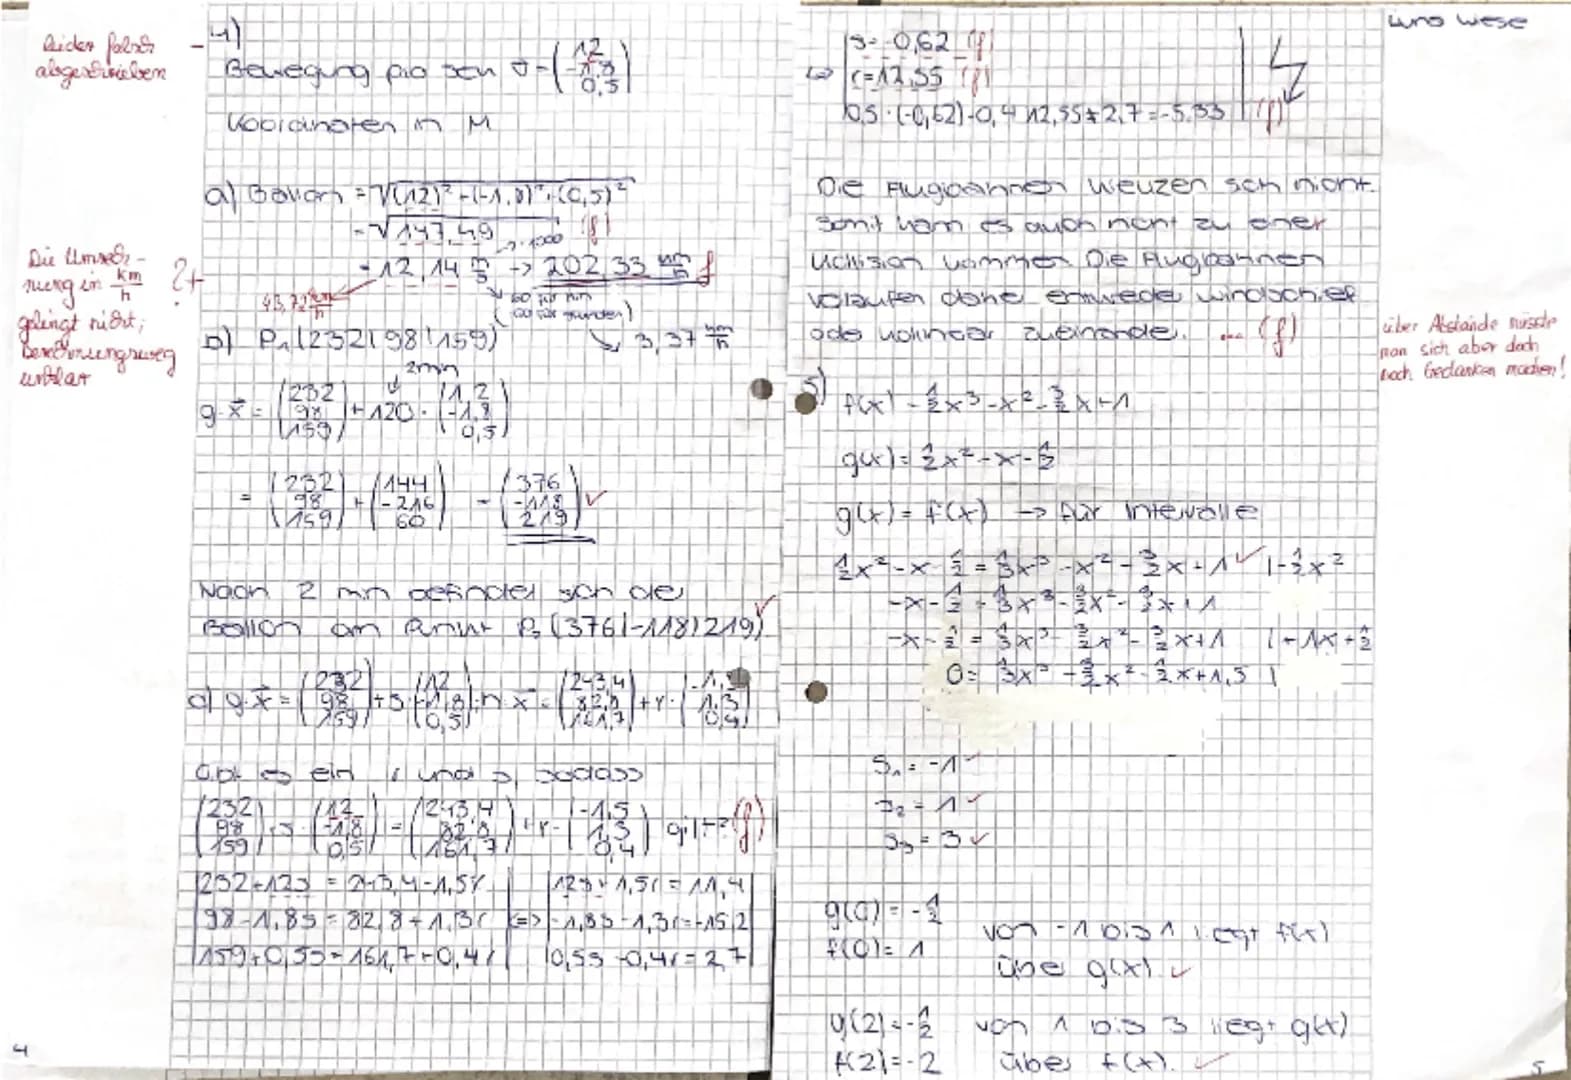 4)
leider falsch
abgeschrieben
Bewegung pro sek v = (12 -1,8 0,5)
Koordinaten in M
a) Ballon = √(12)² + (-1,8)² + (0,5)²
= √147,49 (f)
= 12,14 m/s → 202,33 km/h f
· 1000
43,7 km/h
Die Umrech-
nung in km/h
gelingt nicht;
Berechnungsweg
unklar
?+
60 für min
60 für stunden)
3,37 km/h
b) P₁(232|98|159)
2min
g: x = (232 98 159) + 120 · (1,2 -1,8 0,5)
= (232 98 159) + (144 -216 60) = (376 -118 219) ✓
Nach 2 min befindet sich der
Ballon am Punkt P₂ (376|-118|219) ✓
c) g: x = (232 98 159) + s · (12 -1,8 0,5) ; h: x = (243,4 82,8 161,7) + r · (-1,5 1,3 0,4)
Gibt es ein r und s, sodass
(232 98 159) + s · (12 -1,8 0,5) = (243,4 82,8 161,7) + r · (-1,5 1,3 0,4) gilt? (f)
|232+12s = 243,4-1,5r| |12s+1,5r = 11,4|
|98-1,8s = 82,8+1,3r| <=> |-1,8s-1,3r=-15,2|
|159+0,5s=161,7+0,4r| |0,5s-0,4r=2,7|
4
Luna Wese
s= -0,62 (f)
<=> r=12,55 (f)
0,5·(-0,62)-0,4·12,55+2,7=-5,33 (f)
Die Flugbahnen kreuzen sich nicht.
Somit kann es auch nicht zu einer
Kollision kommen. Die Flugbahnen
verlaufen daher entweder windschief
oder kolinear zueinander. ... (f)
über Abstände müsste
man sich aber doch
noch Gedanken machen!
5)
f(x) = 1/3x³-x²-3/2x+1
g(x) = 1/2x²-x-1/2
g(x) = f(x) → für Intervalle
1/2x²-x-1/2 = 1/3x³-x²-3/2x+1 ✓ |-1/2x²
-x-1/2 = 1/3x³-3/2x²-3/2x+1
-x-1/2 = 1/3x³-3/2x²-3/2x+1 |+1x+1/2
0= 1/3x³-3/2x²-1/2x+1,5 |
S₁ = -1 ✓
S₂ = 1 ✓
S₃ = 3 ✓
g(0) = -1/2
f(0) = 1
von -1 bis 1 liegt f(x)
über g(x) ✓
g(2) = -1/2
f(2) = -2
von 1 bis 3 liegt g(x)
über f(x). ✓
5